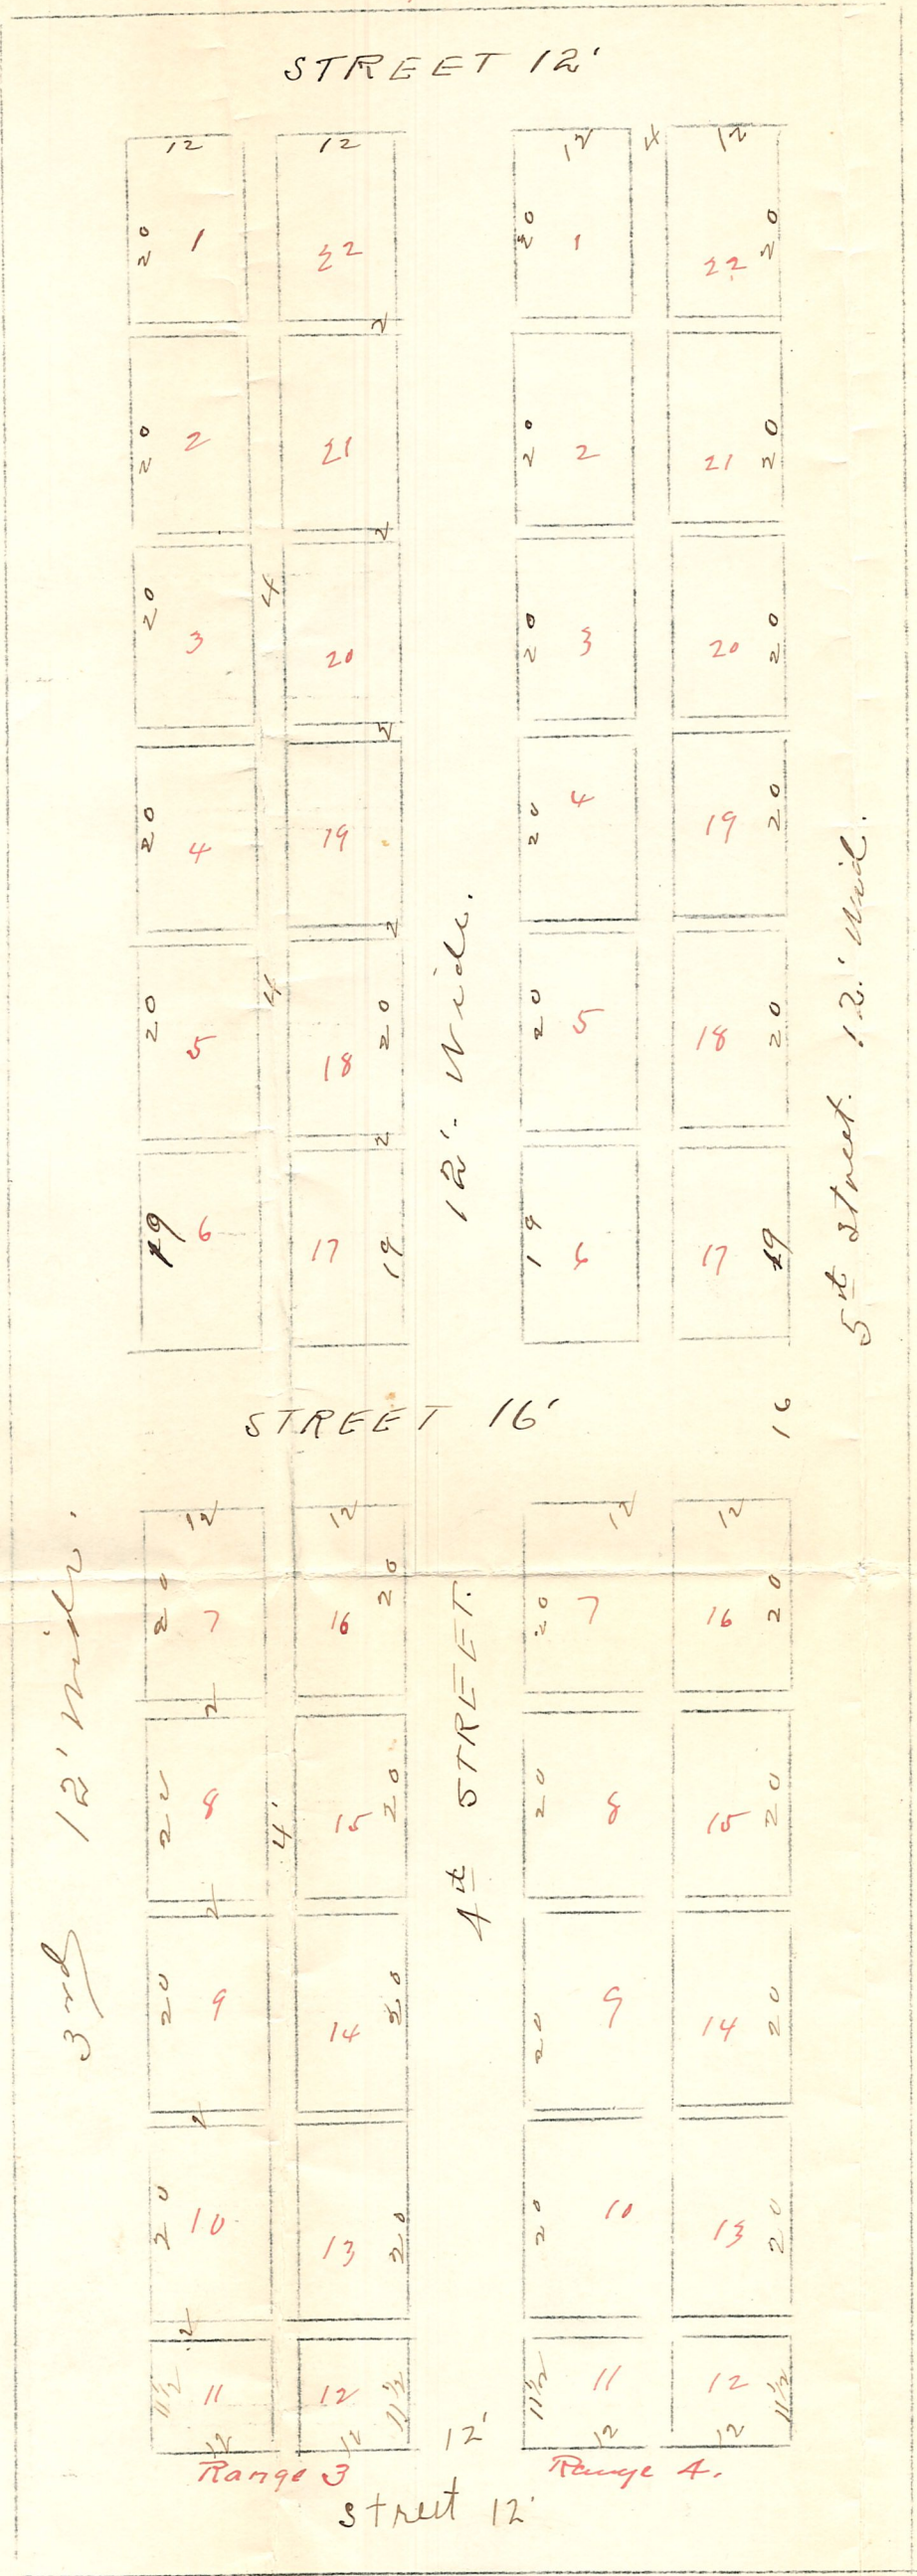 STREET 12'
12 12 12 4 12
20 1 22 20 1 22 20
2
20 2 21 20 2 21 20
2
20 3 4 20 20 3 20 20
2
20 4 19 20 4 19 20
2
20 5 4 18 20 20 5 18 20
2
19 6 17 19 19 6 17 19
12'. Wide.
5th street. 12.' Wid.
STREET 16' 16
12 12 12 12
20 7 16 20 20 7 16 20
2
22 8 4' 15 20 20 8 15 20
2
20 9 14 20 20 9 14 20
2
20 10 13 20 20 10 13 20
2
11½ 11 12 11½ 11½ 11 12 11½
12 12 12' 12 12
3rd 12' Wide.
4th STREET.
Range 3 Range 4.
Street 12'